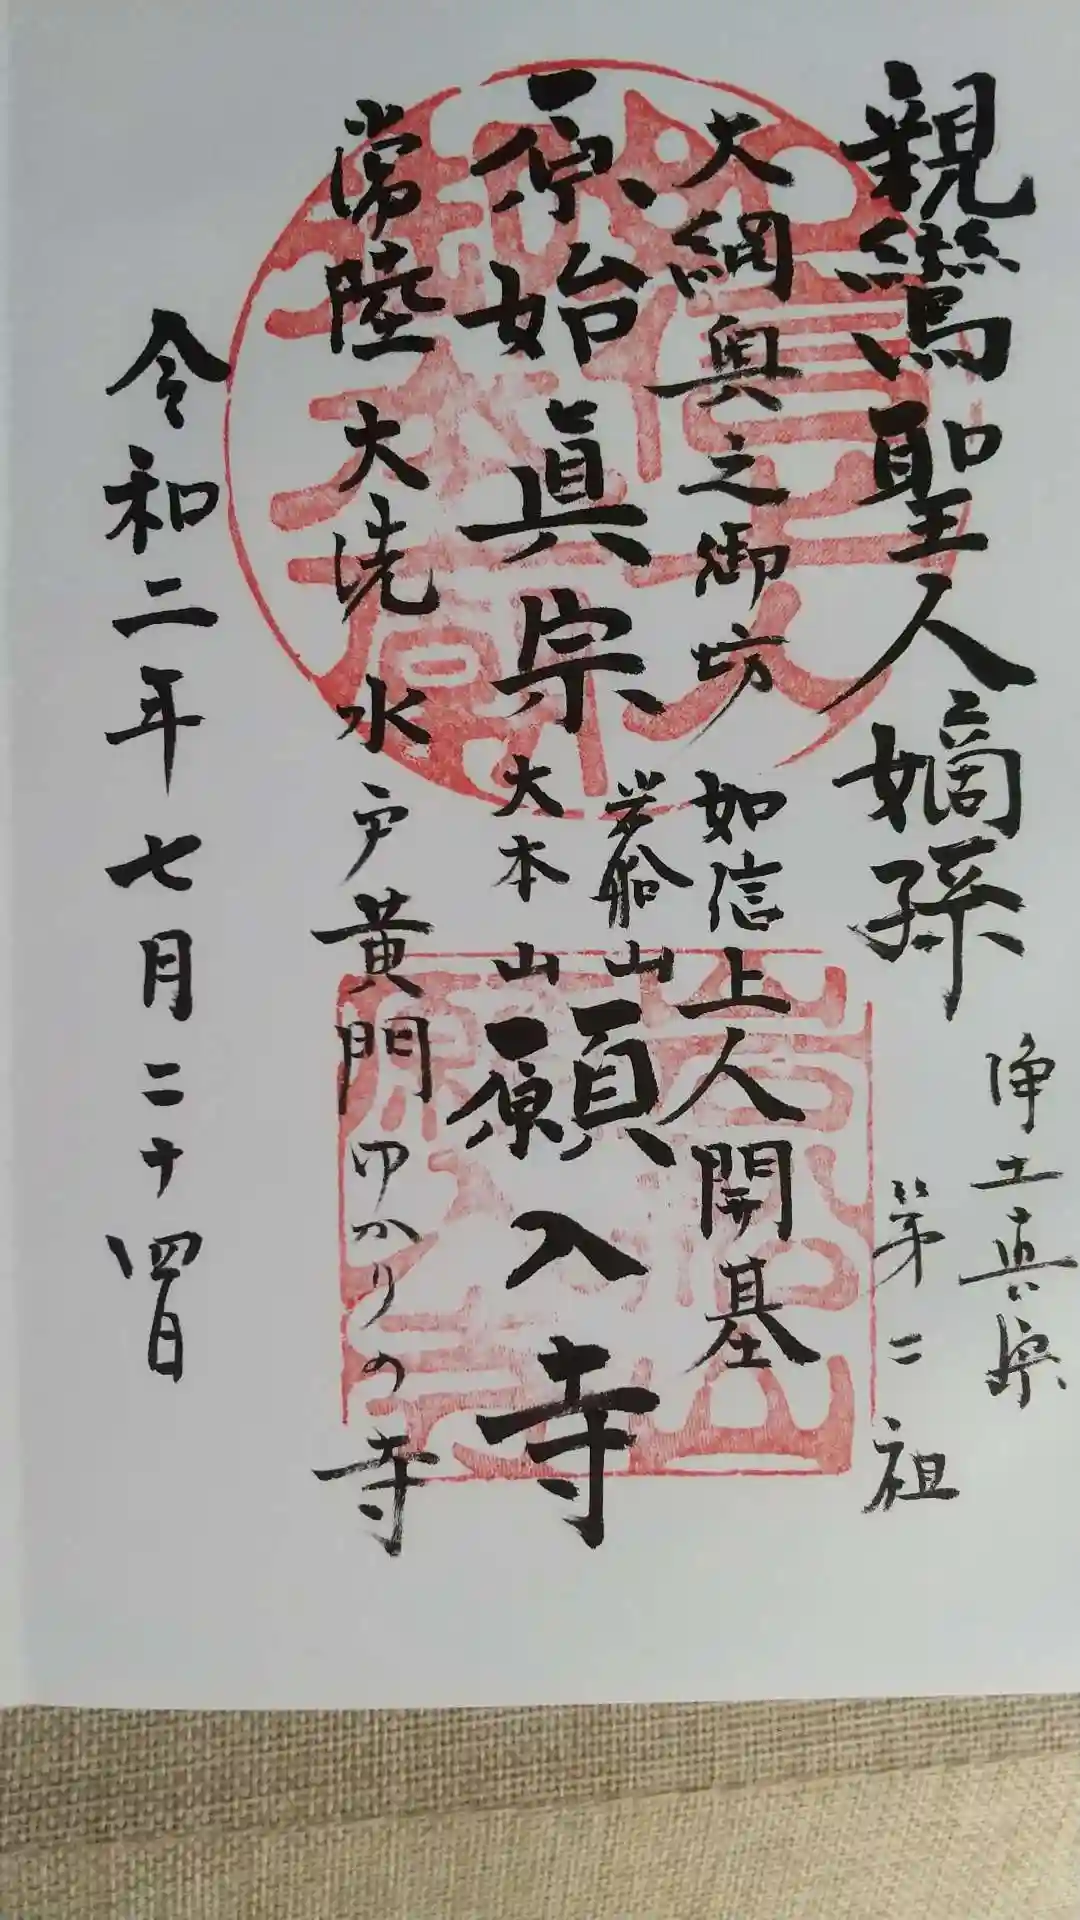 親鸞聖人嫡孫
浄土真宗
第二祖
大網奥之御坊
如信上人開基
原始眞宗
岩船山
大本山
願入寺
常陸大洗水戸黄門ゆかりの寺
令和二年七月二十四日